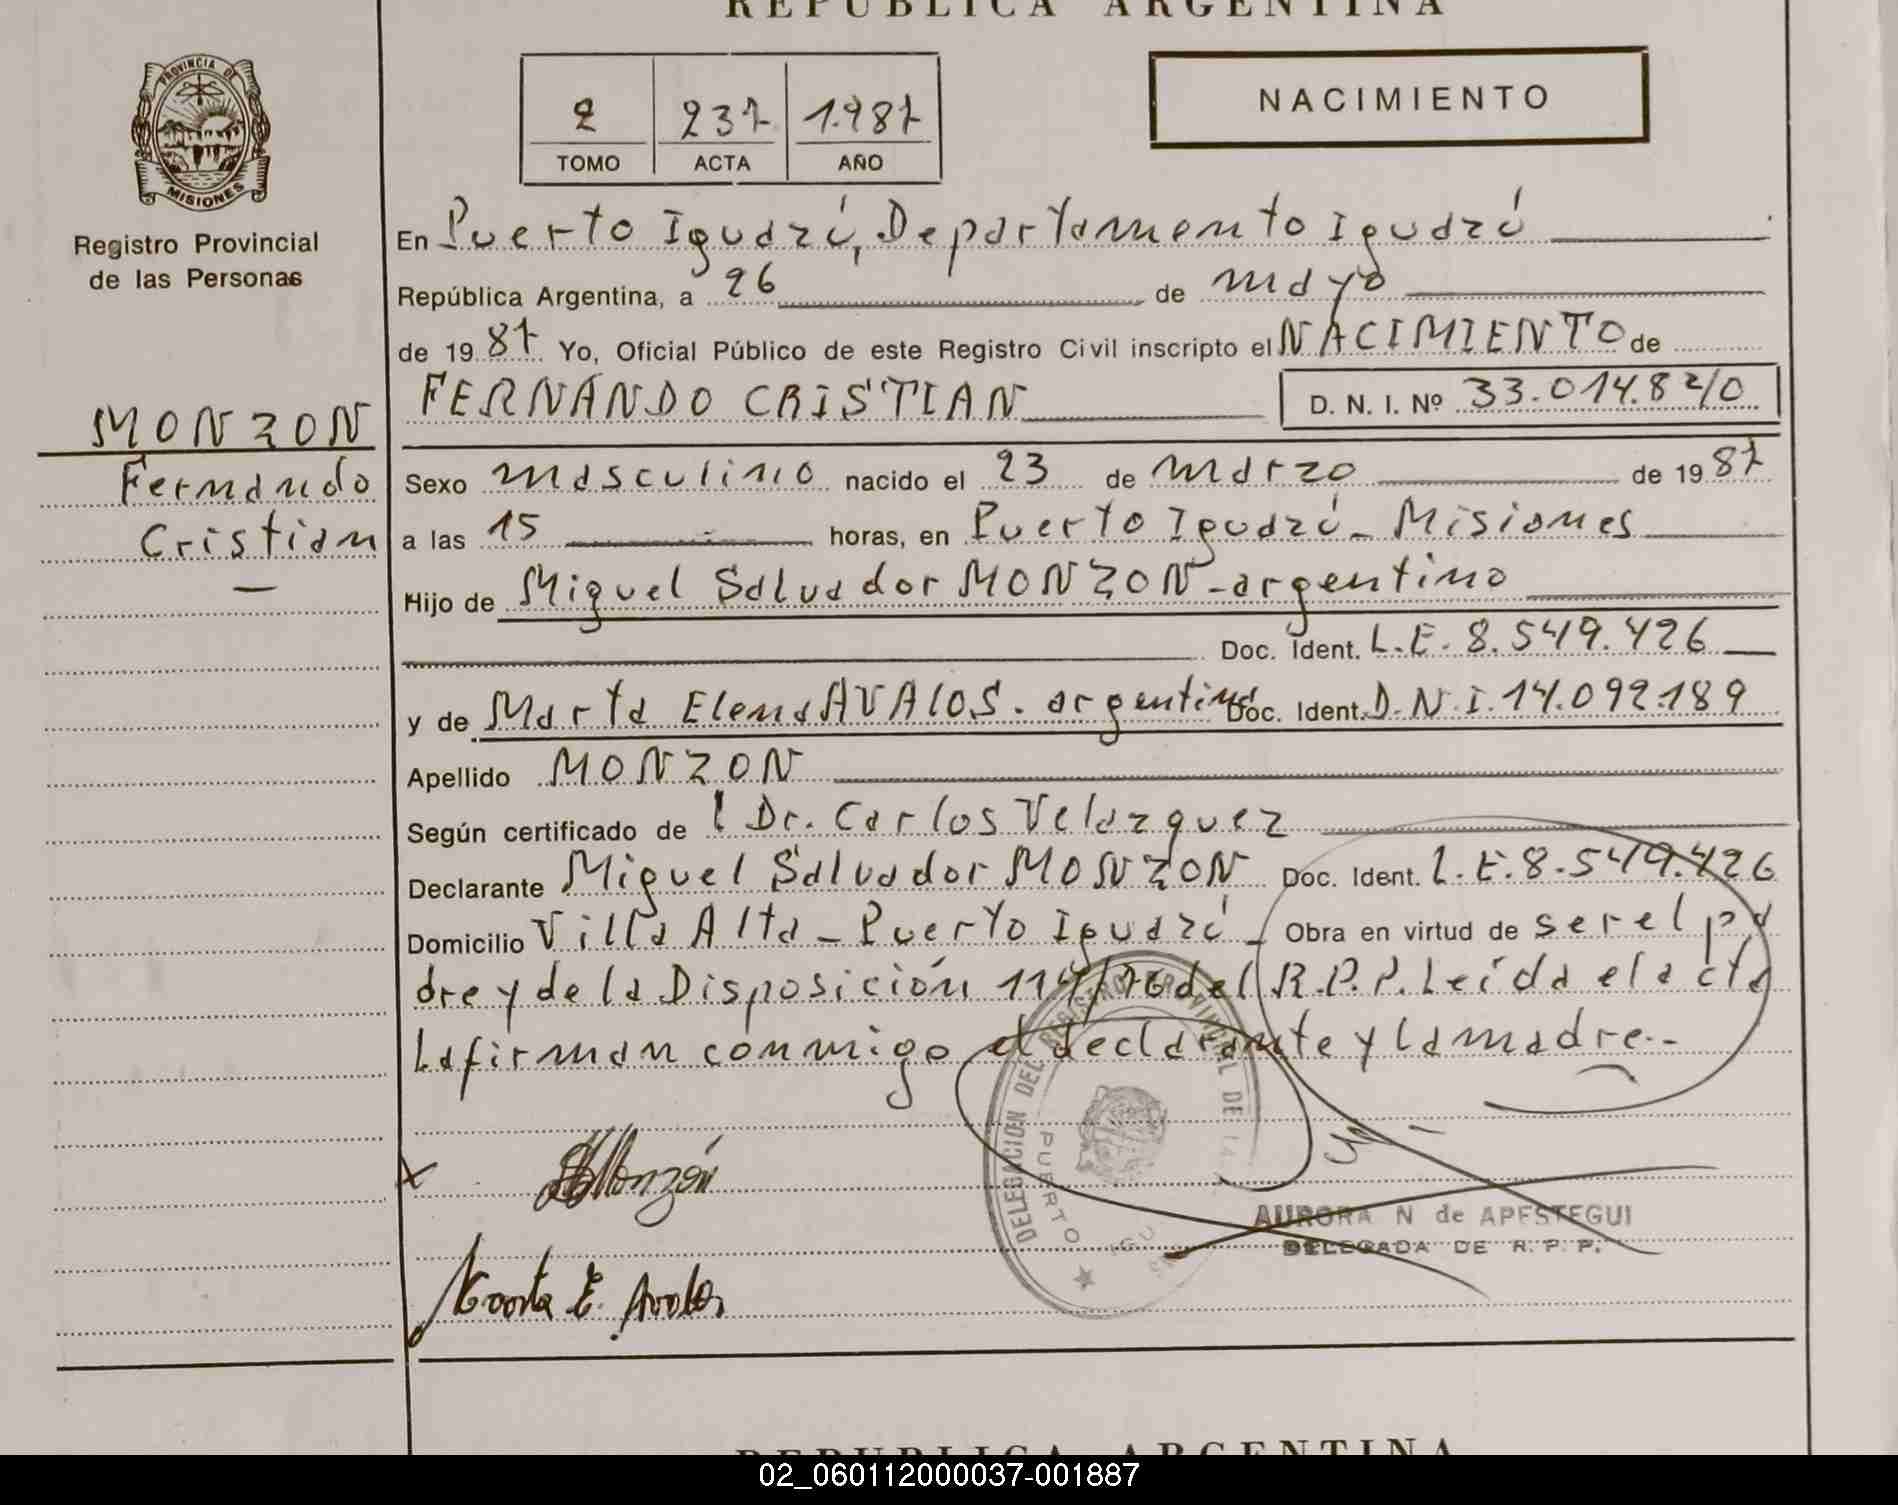 REPUBLICA ARGENTINA
PROVINCIA DE
MISIONES
Registro Provincial
de las Personas
2 237 1.987
TOMO ACTA AÑO
NACIMIENTO
En Puerto Iguazú, Departamento Iguazú
República Argentina, a 26 de mayo
de 1987 Yo, Oficial Público de este Registro Civil inscripto el NACIMIENTO de
FERNANDO CRISTIAN D. N. I. Nº 33.014.820
MONZON
Fernando
Cristian
Sexo masculino nacido el 23 de marzo de 1987
a las 15 horas, en Puerto Iguazú - Misiones
Hijo de Miguel Salvador MONZON - argentino
Doc. Ident. L.E. 8.549.426
y de Marta Elena AVALOS. argentina Doc. Ident. D.N.I. 14.092.189
Apellido MONZON
Según certificado de l Dr. Carlos Velazquez
Declarante Miguel Salvador MONZON Doc. Ident. L.E. 8.549.426
Domicilio Villa Alta - Puerto Iguazú - Obra en virtud de ser el pa
dre y de la Disposición 114/76 del R.P.P. Leída el acta
La firman conmigo el declarante y la madre.-
DELEGACION DEL REGISTRO PROVINCIAL DE LAS
PUERTO IGU
Monzón
AURORA N de APESTEGUI
DELEGADA DE R. P. P.
Marta E. Avalos
REPUBLICA ARGENTINA
02_060112000037-001887